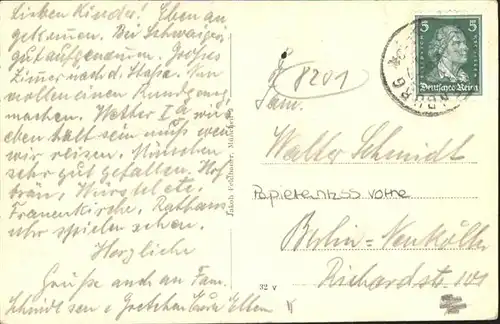 Lieben Kinder! Eben an-
gekommen. Bei Schwaiger
gut aufgenommen. Großes
Zimer nach d. Straße. Nun
wollen einen Rundgang
machen. Wetter Ia wir
eben hält sein muß wen
wir reisen. München
sehr gut gefallen. Hof-
bräu, Würstl etc.
Frauenkirche, Rathaus-
uhr spielen sehen.
Herzliche
Grüße auch an Fam.
Schmidt sen u Gretchen Eure Eltern
Jakob Feldbauer, München
32 v
5 5
Deutsches Reich
8201
Fam.
Walter Schmidt
Berlin=Neukölln
Richardstr. 101